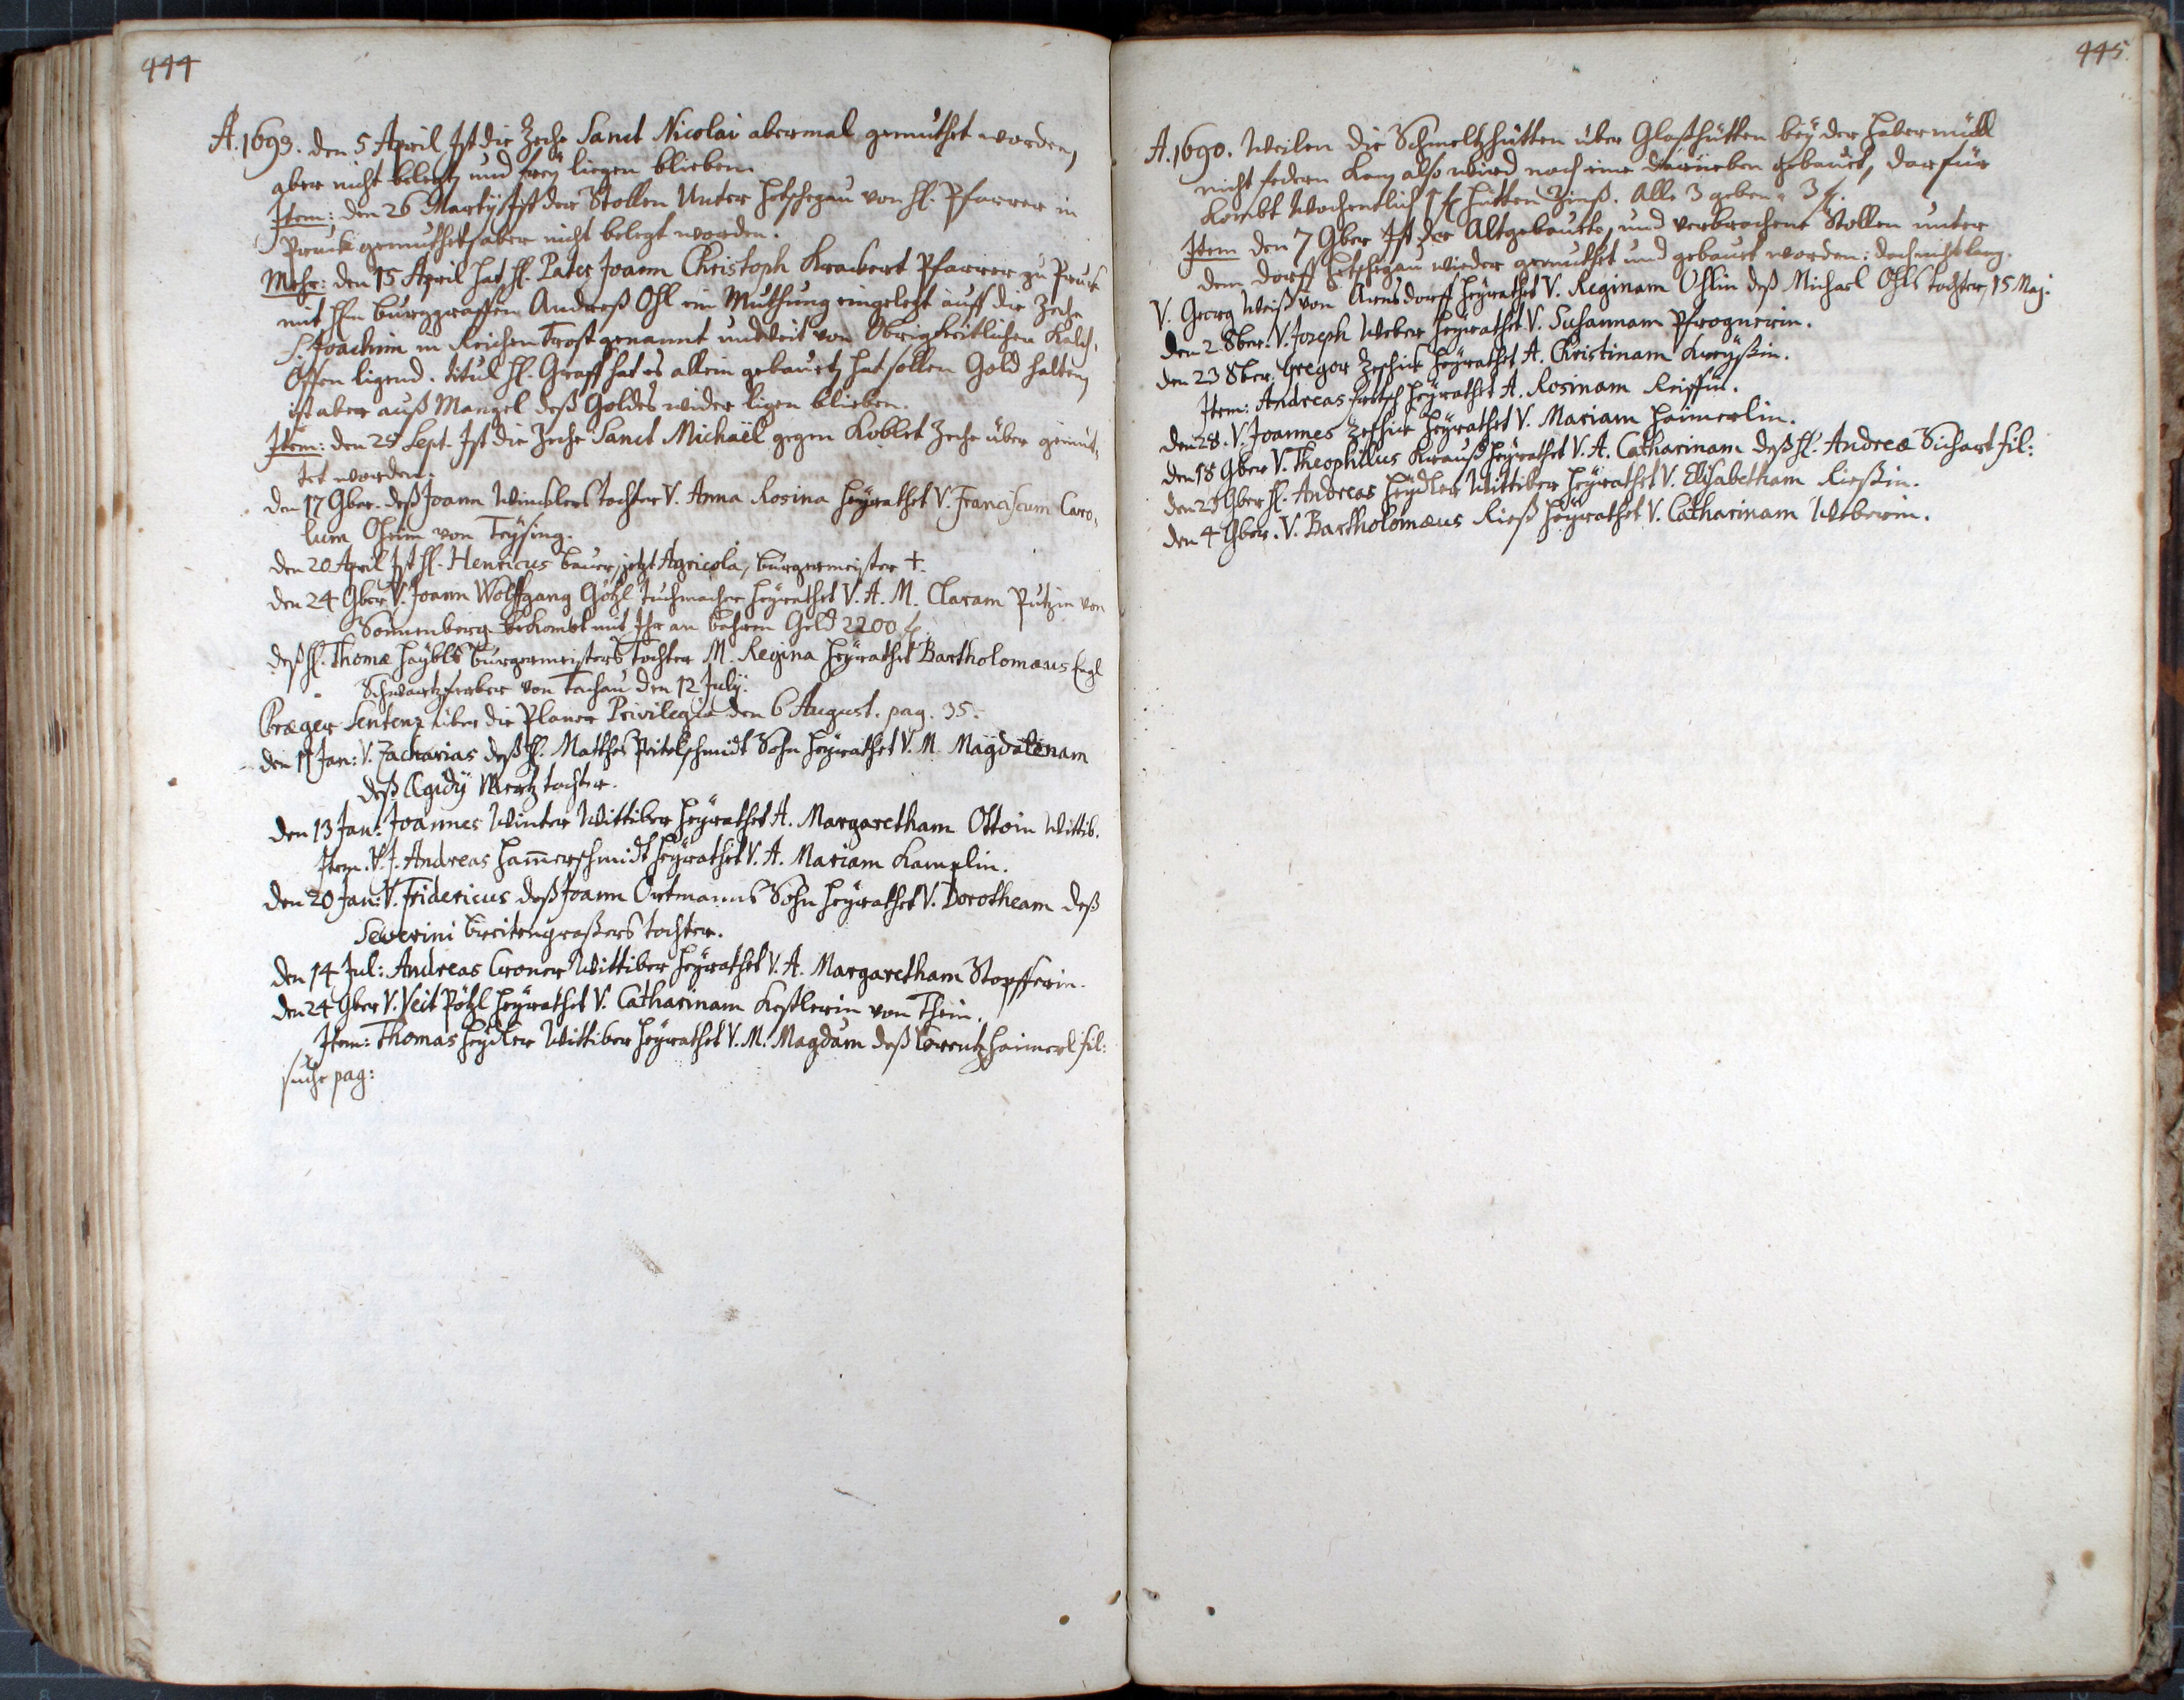 444
A. 1693. den 5 April Ist die Zeche Sanct Nicolai abermal gemuthet worden,
aber nicht belegt, und frey liegen blieben.
Item: den 26 Martij Ist der Stollen Unter Hetschegau von H. Pfarrer in
Pruck gemuthet, aber nicht belegt worden.
Mehr: den 15 April hat H. Pater Joann Christoph Krackert Pfarrer zu Pruck
mit Hn Burggraffen Andreß Ohl ein Muthung eingelegt auff die Zeche
S. Joachim in Reichen Trost genannt undweit von Obrigkeitlichen Kalch-
Offen ligend. titul H. Graff hat es allein gebauet, hat sollen Gold halten,
ist aber auß Mangel deß Goldes wider ligen blieben.
Item: den 25 Sept. Ist die Zeche Sanct Michaël gegen Koblet Zeche über gemut-
tet worden.
den 17 9ber. deß Joann Wincklers tochter V. Anna Rosina heyrathet V. Franciscum Caro-
lum Oheim von Teysing.
den 20 April Ist H. Henricus Bauer, jetzt Agricola, burgermeister †.
den 24 9ber V. Joann Wolffgang Götzl tuchmacher heyrathet V. A. M. Claram Putzin von
Sonnenberg. bekombt mit Ihr an bahren Geld 2200 f.
deß H. Thomæ Haybls Burgermeisters tochter M. Regina heyrathet Bartholomæus Engl
Schwartzferber von Tachau den 12 July.
Præger Sentenz über die Planer Privilegia den 6 August. pag. 35.
den 11 Jan: V. Zacharias deß H. Matthes Peitelschmidt Sohn heyrathet V. M. Magdalenam
deß Ægidy Mertz tochter.
den 13 Jan: Joannes Winter Wittiber heyrathet A. Margaretham Ottoin Wittib.
Item. V. J. Andreas Hammerschmidt heyrathet V. A. Mariam Kamplin.
den 20 Jan: V. Fridericus deß Joann Ortmanns Sohn heyrathet V. Dorotheam deß
Severini Breitengraßers tochter.
den 14 Jul: Andreas Croner Wittiber heyrathet V. A. Margaretham Stopfferin.
den 24 9ber V. Veit Pötzl heyrathet V. Catharinam Keßlerin von Thein.
Item: Thomas Heydler Wittiber heyrathet V. M. Magdam deß Lorentz Haimerl fil:
suche pag:
445.
A. 1690. Weilen die Schmeltzhütten über Glaßhütten bey der Habermühl
nicht federn kan, also wird noch eine darneben gebauet, darfür
kombt wochentlich 1 f hütten Zinß. Alle 3 geben 3 f.
Item den 7 9ber Ist der Altgebaute, und verbrochene Stollen unter
dem dorff Hetschegau wieder gemuthet und gebauet worden: doch nicht lang.
V. Georg Weiß von Arnsdorff heyrathet V. Reginam Ohlin deß Michael Ohls tochter, 15 Maj.
den 2 8ber. V. Joseph Weber heyrathet V. Susannam Pfrognerin.
den 23 8ber. Gregor Zeschick heyrathet A. Christinam Kreyßin.
Item: Andreas Fritsch heyrathet A. Rosinam Reiffin.
den 28. V. Joannes Zeschick heyrathet V. Mariam Haimerlin.
den 18 9ber V. Theophilus Krauß heyrathet V. A. Catharinam deß H. Andreæ Sichart fil:
den 25 9ber H. Andreas Heydler Wittiber heyrathet V. Elisabetham Rießin.
den 4 9ber. V. Bartholomæus Rieß heyrathet V. Catharinam Weberin.